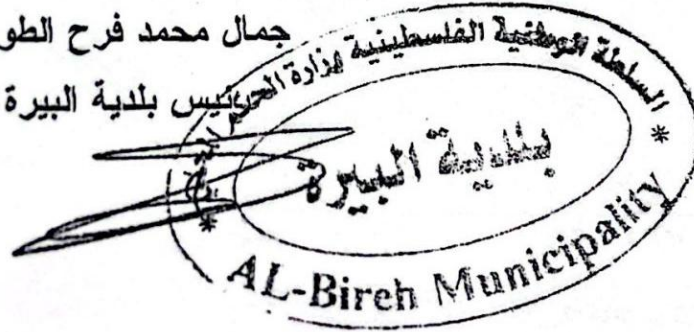 جمال محمد فرح الطو
رئيس بلدية البيرة
السلطة الوطنية الفلسطينية وزارة الحكم
بلدية البيرة
AL-Bireh Municipality